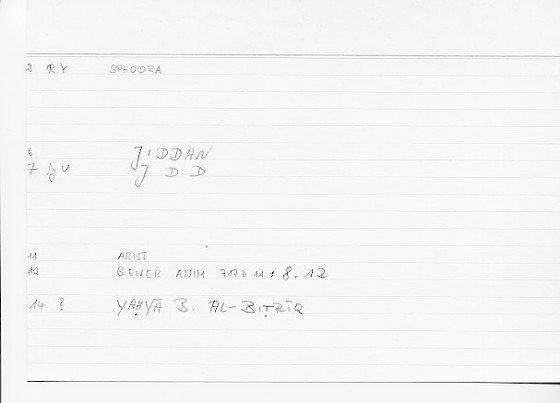 2 RY SPHODRA
6 J̌IDDAN
7 ǧv J̌ D D
11 ARIST
12 GENER ANIM 717 b 11 : 8.12
14 ? YAḤYĀ B. AL-BIṬRĪQ